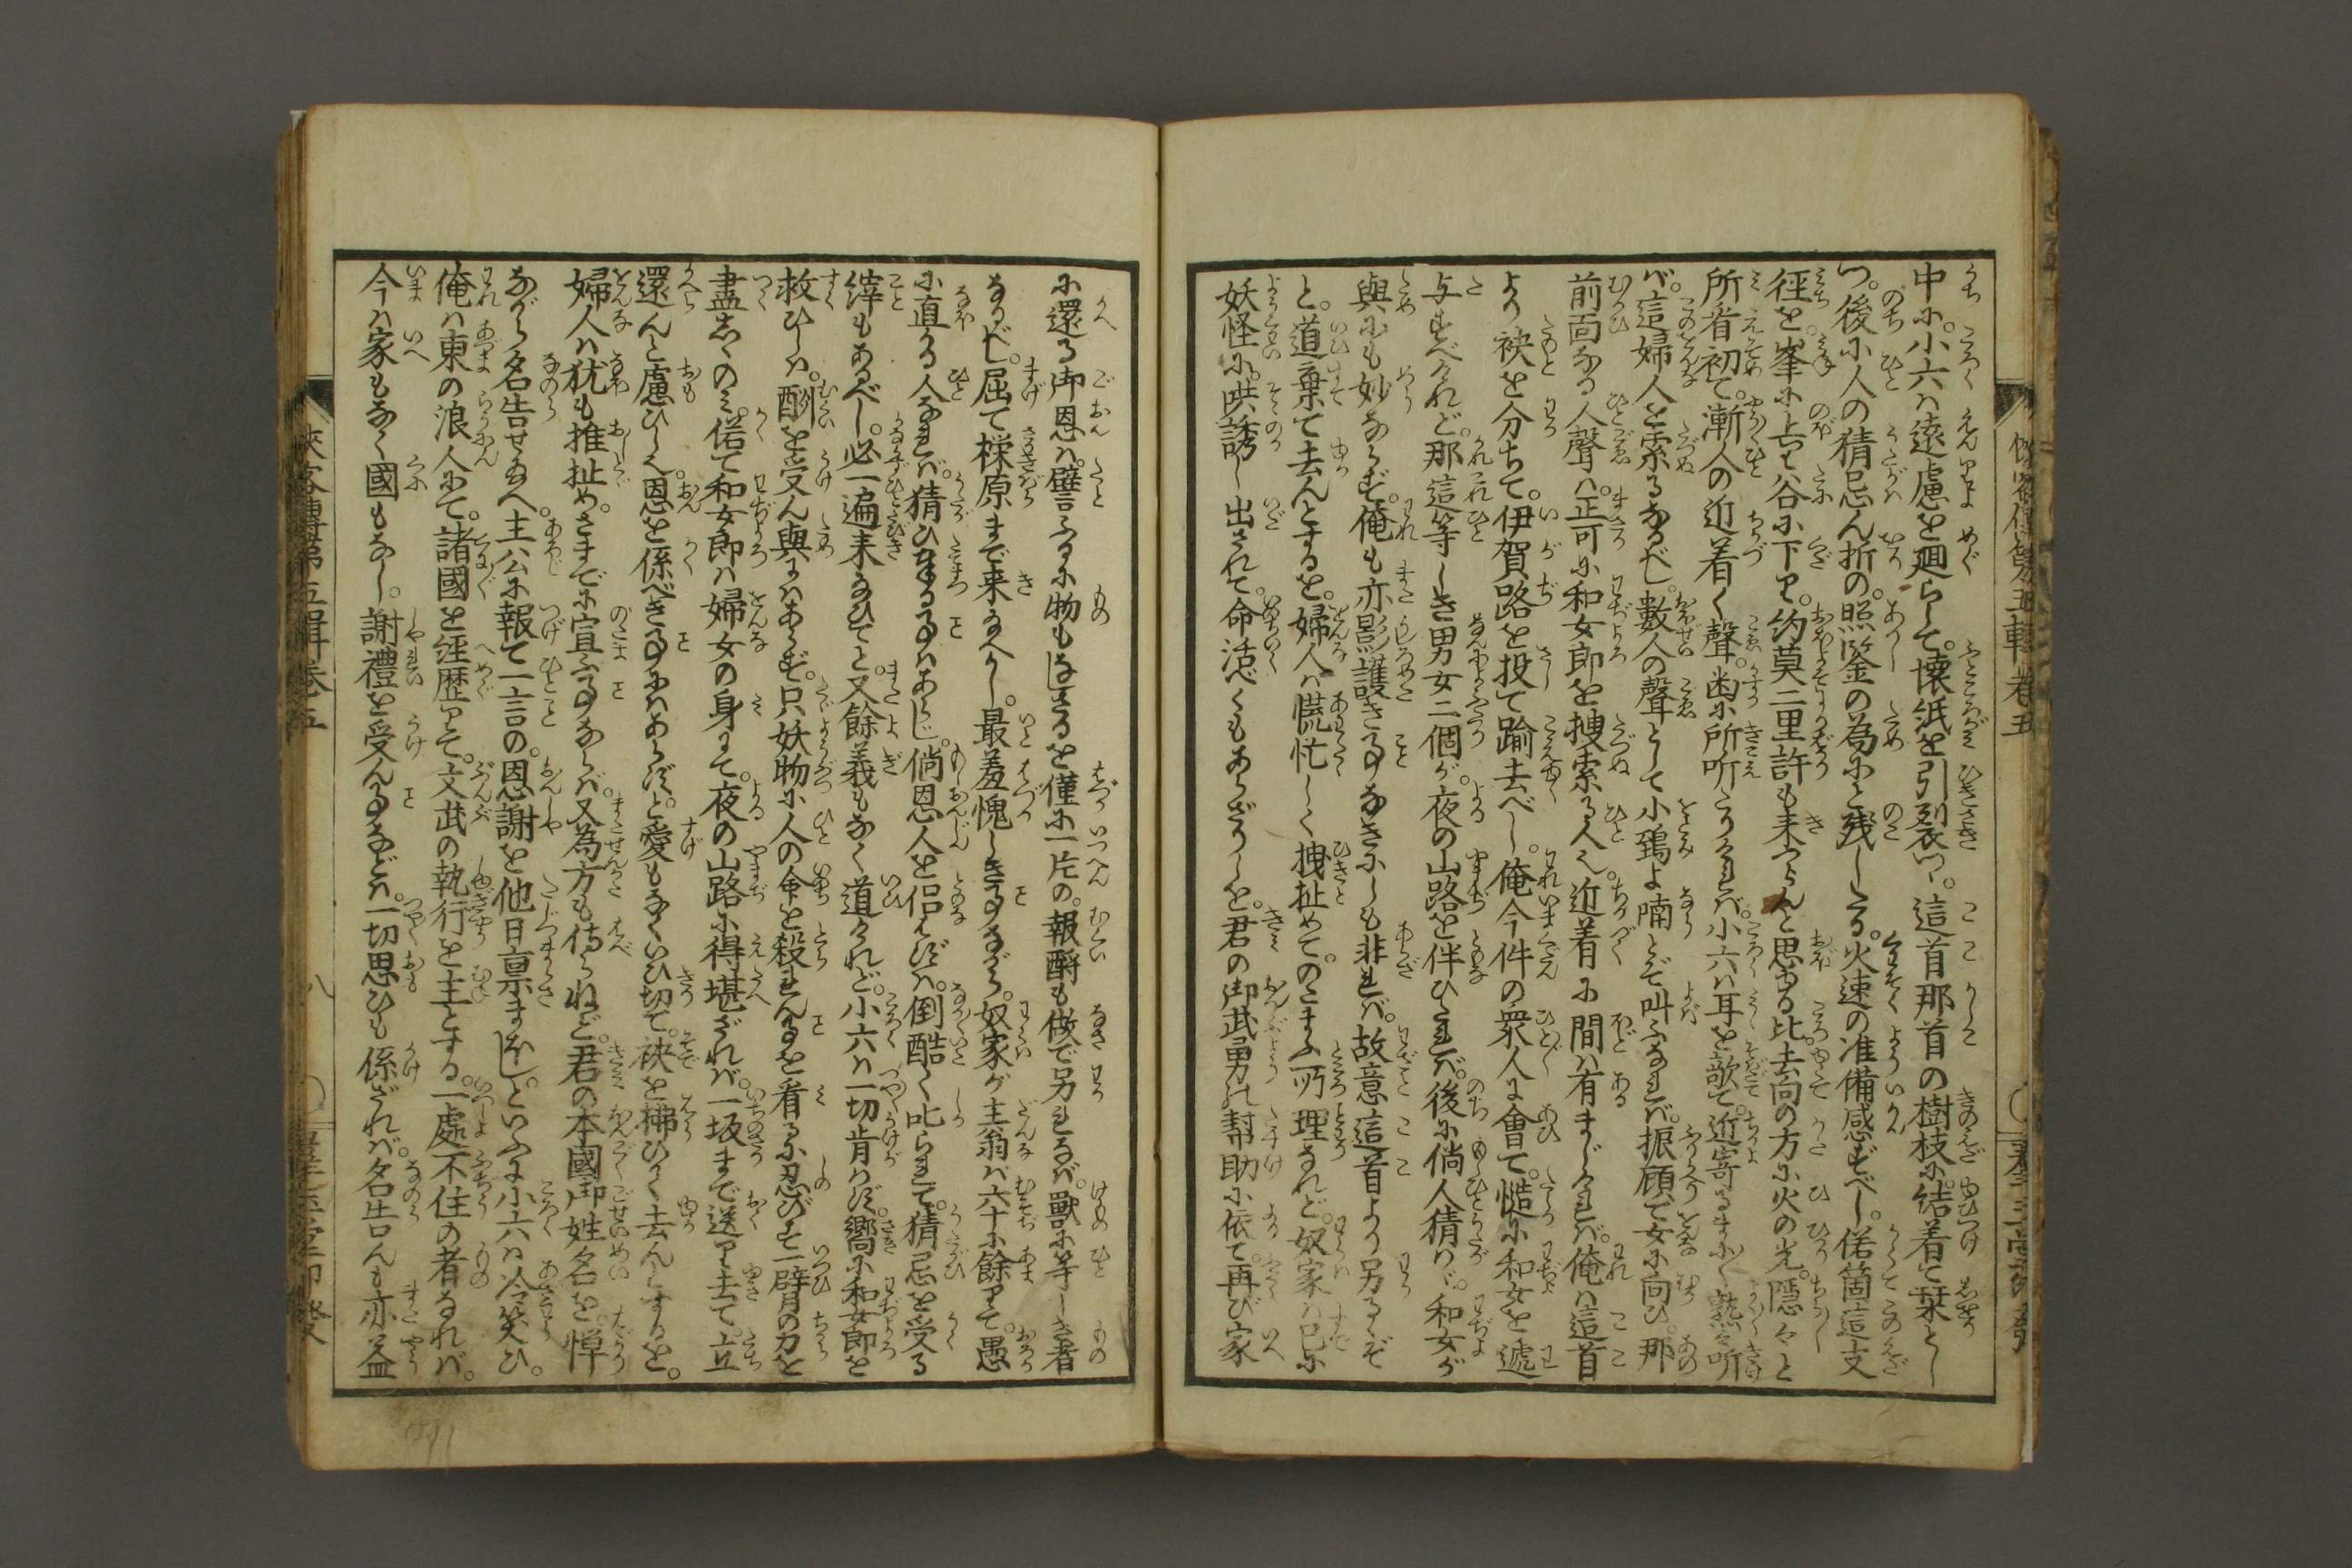 中に。小六は遠慮を廻らして。懐紙を引裂つ。這首那首の樹枝に。結着て栞とし
つ。後に人の猜忌ん折の。照鑒の為にと残したる。火速の准備感ずべし。偖箇這支
径を。峯に上り谷に下り。約莫二里許も来つらんと思ふ比。去向の方に火の光。隠々と
所者初て。漸人の近着く聲。幽に所听たりければ。小六は耳を欹て。近寄るまに〳〵熟々听
ば。這婦人を索るなるべし。數人の聲として小鵶よ喃とぞ叫ふなれば。振顧て女に向ひ。那
前面なる人聲は。正可に和女郎を搜索る人也。近着に間は有まじければ。俺は這首
より袂を分ちて。伊賀路を投て踰去べし。俺今件の衆人に會て。憖に和女を逓
与すべけれど。那這等しき男女二個が。夜の山路を伴ひたれば。後に倘人猜はゞ。和女が
與にも妙ならず。俺も亦影護き事なきにしも非れば。故意這首より別るゝぞ
と。道棄て去んとするを。婦人は慌忙しく拽扯めて。のたまふ所理なれど。奴家は已に
妖怪に。哄誘し出されて。命活べくもあらざりしを。君の御武勇の幇助に依て。再び家
に還る御恩は。譬ふるに物もなきを。僅に一片の。報酹も做で別れなば。獸に等しき者
なるべし。屈て樣原まで来給へかし。最羞愧しき事ながら。奴家が主翁は六十に餘りて。愚
に直なる人なれば。猜ひ奉る事はあらじ。倘恩人を侶はずは。倒酷く叱られて。猜忌を受る
縡もあるべし。必一遍来給ひてと。又餘義もなく道けれど。小六は一切肯はず。嚮に和女郎を
救ひしは。酬を受ん與にはあらず。只妖物に人の命を殺れん事を看るに忍びず。一臂の力を
盡しゝのみ。偖て和女郎は婦女の身にて。夜の山路に得堪ざれば。一坂まで送り去て。立
還んと慮ひし也。恩を係べき事にはあらずと。愛もなくいひ切て。袂を拂ひて去んとするを。
婦人は犹も推扯め。さまでに宣ふ事ならば。又為方も侍らねど。君の本國御姓名を。憚
ながら名告せ給へ。主公に報て一言の。恩謝を他日稟まほし。といふに小六は冷笑ひ。
俺は東の浪人にて。諸國を經歴りて。文武の執行を主とする。一處不住の者なれば。
今は家もなく國もなし。謝禮を受ん事などは。一切思ひも係ざれば。名告んも亦益
俠客傳第五輯卷五
八